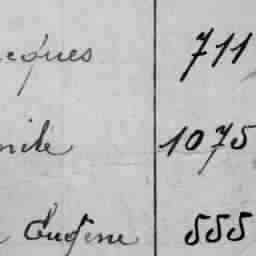 cques 711
mile 1075
e Eugène 555